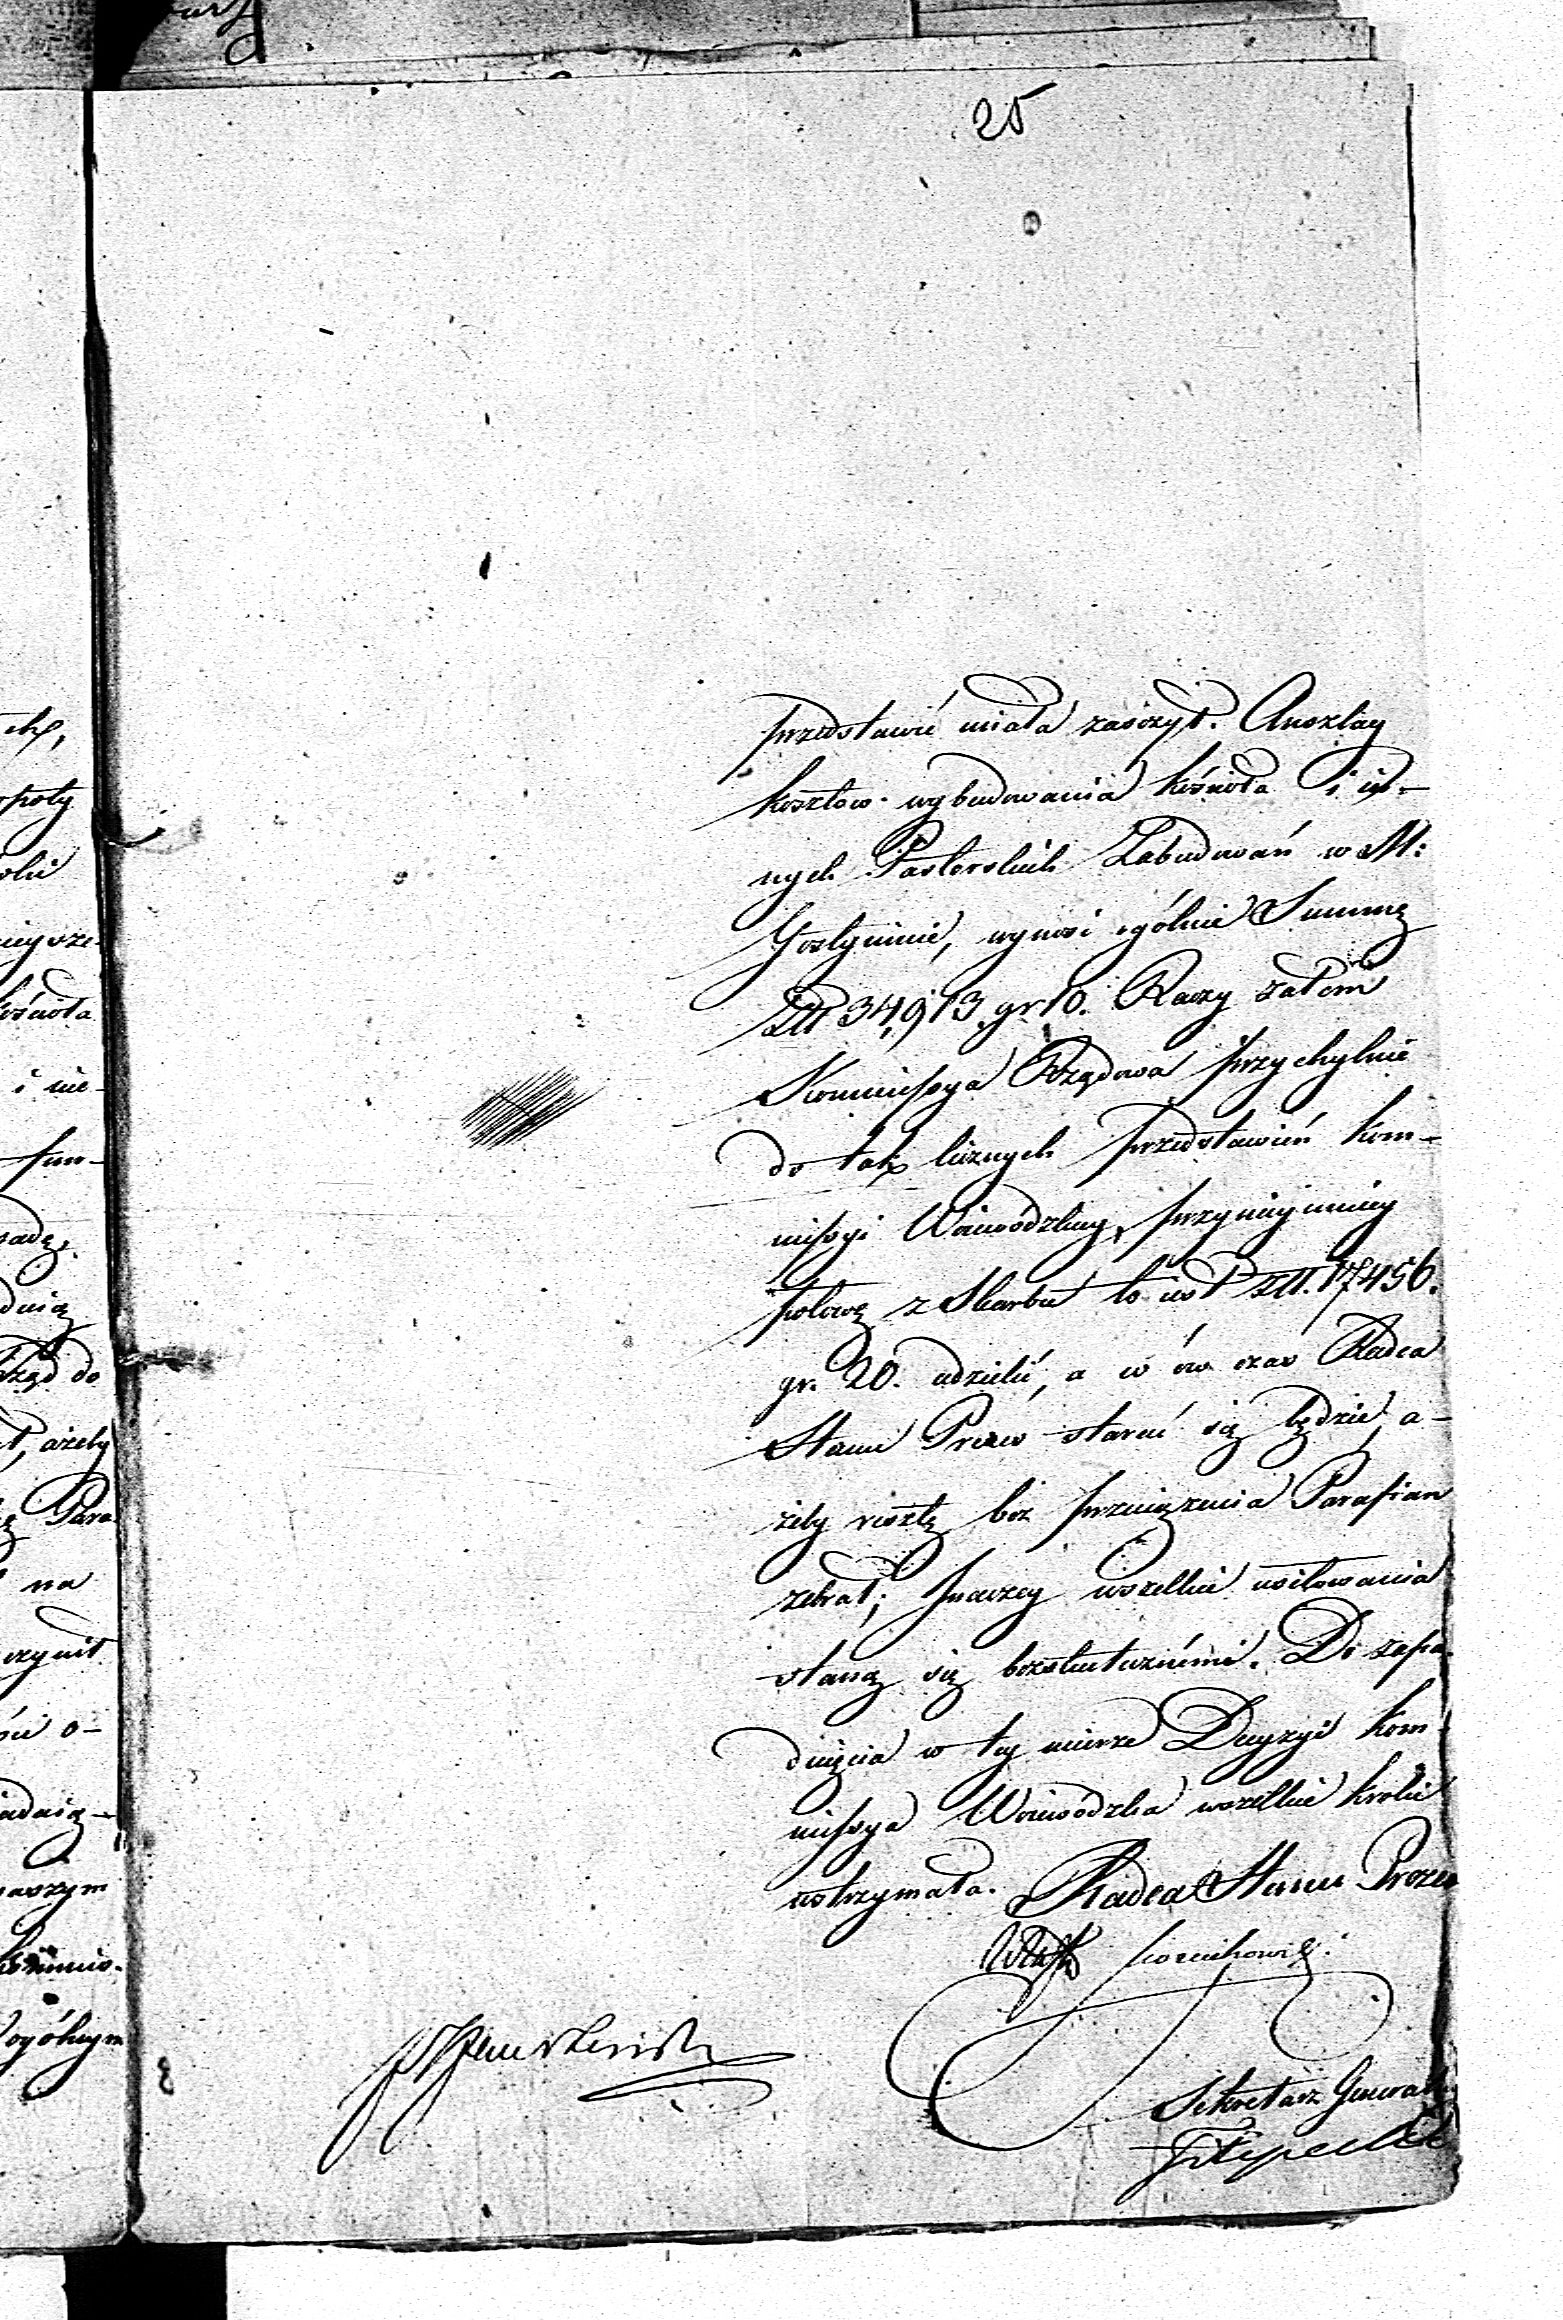 25
przedstawić miała zaszczyt. Anszlag
kosztow wybudowania kościoła i in-
nych Pastorskich Zabudowań w M:
Gostyninie, wynosi ogólnie Summę
Złł 34,913 gr 10. Raczy zatem
Kommissya Rządowa przychylnie
do tak licznych przedstawień kom-
missyi Woiewódzkiey, przynaymniey
połowę z Skarbu to iest złł. 17,456.
gr. 20. udzielić, a w ów czas Radca
Stanu Prezes starać się będzie, a-
żeby resztę bez przeciążenia Parafian
zebrał; inaczey wszelkie usiłowania
staną się bezskutecznémi. Do zapa-
dnięcia w tey mierze Decyzyi kom-
missya Woiewódzka wszelkie kroki
wstrzymała. Radca Stanu Prezes
Sekretarz Generalny
ch,
i nie-
na
czynił
Rząd do
ażeby
Para
kościoła
ogólnym